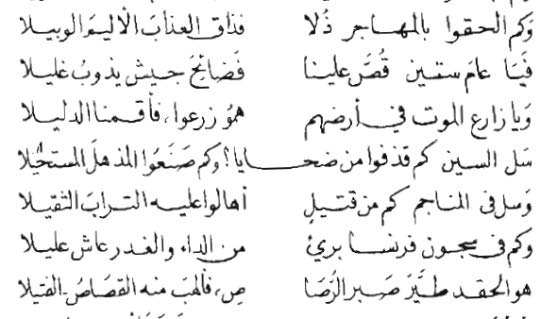 وكم الحقوا بالمهاجر ذلا فذاق العذاب الأليم الوبيلا
فيا عام ستين قص علينا فضائح جيش يذوب غليلا
ويا زارع الموت في أرضهم همو زرعوا، فأقمنا الدليلا
سل السين كم قذفوا من ضحايا؟ وكم صنعوا المذهل المستحيلا
وسل في المناجم كم من قتيل أهالوا عليه التراب الثقيلا
وكم في سجون فرنسا برئ من الداء والغدر عاش عليلا
هو الحقد طير صبر الرصا ص، فألهب منه القصاص الفتيلا